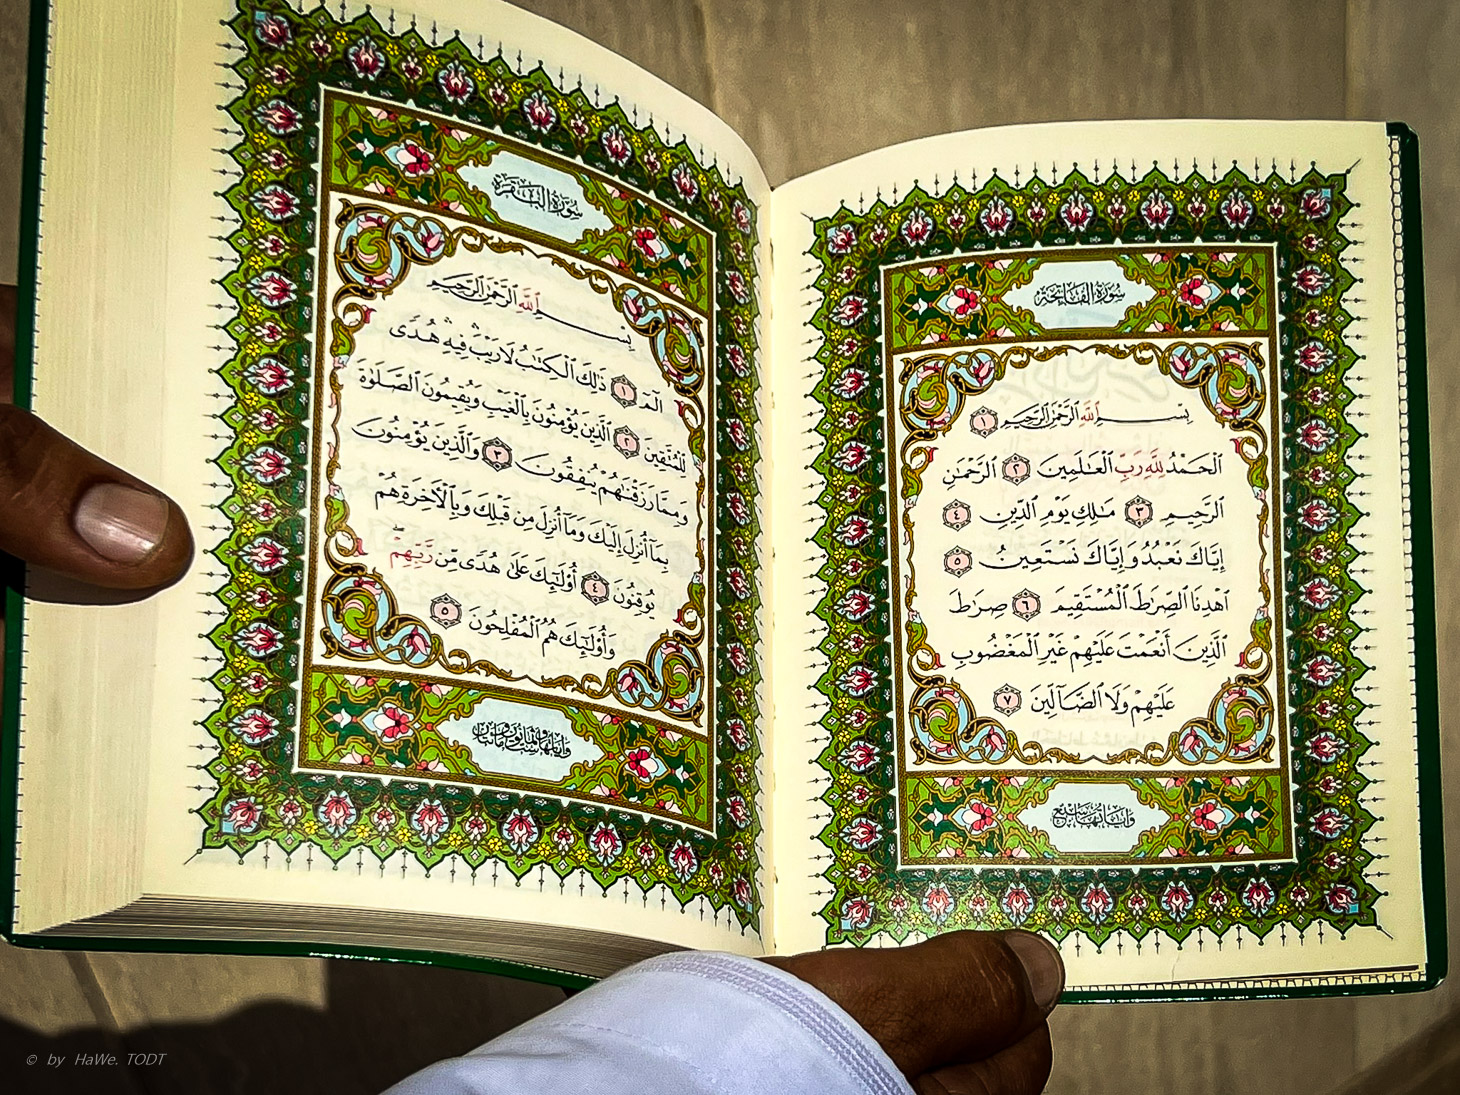 سُورَةُ الفَاتِحَةِ
بِسْمِ ٱللَّهِ ٱلرَّحْمَٰنِ ٱلرَّحِيمِ ١
ٱلْحَمْدُ لِلَّهِ رَبِّ ٱلْعَٰلَمِينَ ٢ ٱلرَّحْمَٰنِ
ٱلرَّحِيمِ ٣ مَٰلِكِ يَوْمِ ٱلدِّينِ ٤
إِيَّاكَ نَعْبُدُ وَإِيَّاكَ نَسْتَعِينُ ٥
ٱهْدِنَا ٱلصِّرَٰطَ ٱلْمُسْتَقِيمَ ٦ صِرَٰطَ
ٱلَّذِينَ أَنْعَمْتَ عَلَيْهِمْ غَيْرِ ٱلْمَغْضُوبِ
عَلَيْهِمْ وَلَا ٱلضَّآلِّينَ ٧
وَآيَاتُهَا سَبْعٌ
سُورَةُ البَقَرَةِ
بِسْمِ ٱللَّهِ ٱلرَّحْمَٰنِ ٱلرَّحِيمِ
الٓمٓ ١ ذَٰلِكَ ٱلْكِتَٰبُ لَا رَيْبَ ۛ فِيهِ ۛ هُدًى
لِّلْمُتَّقِينَ ٢ ٱلَّذِينَ يُؤْمِنُونَ بِٱلْغَيْبِ وَيُقِيمُونَ ٱلصَّلَوٰةَ
وَمِمَّا رَزَقْنَٰهُمْ يُنفِقُونَ ٣ وَٱلَّذِينَ يُؤْمِنُونَ
بِمَآ أُنزِلَ إِلَيْكَ وَمَآ أُنزِلَ مِن قَبْلِكَ وَبِٱلْءَاخِرَةِ هُمْ
يُوقِنُونَ ٤ أُو۟لَٰٓئِكَ عَلَىٰ هُدًى مِّن رَّبِّهِمْ ۖ
وَأُو۟لَٰٓئِكَ هُمُ ٱلْمُفْلِحُونَ ٥
© by HaWe. TODT